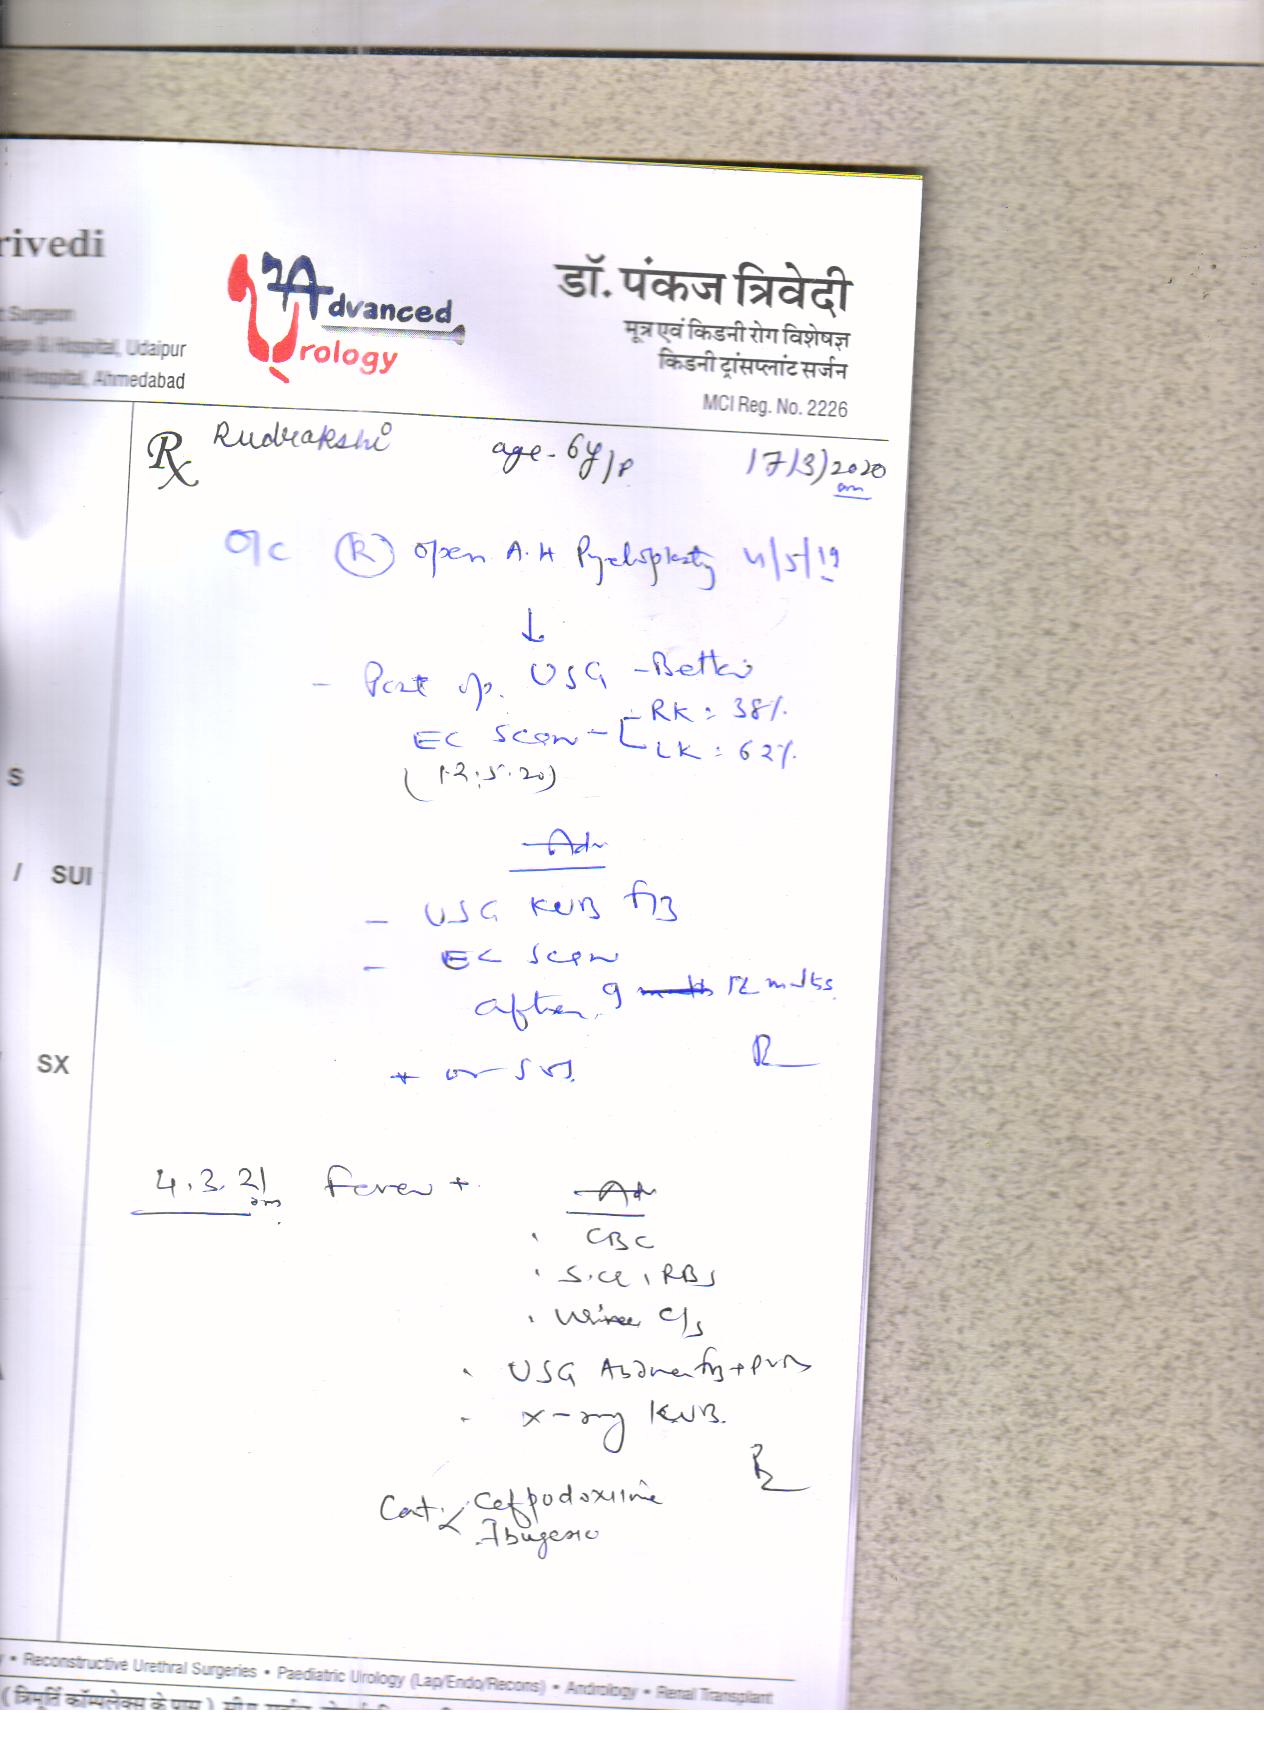 rivedi
Advanced
Urology
डॉ. पंकज त्रिवेदी
मूत्र एवं किडनी रोग विशेषज्ञ
किडनी ट्रांसप्लांट सर्जन
MCI Reg. No. 2226
t Surgeon
lege & Hospital, Udaipur
Hospital, Ahmedabad
Rx Rudrakshi age- 6y/F 17/3/2020
O/c (R) open A.H Pyeloplasty 4/5/19
↓
- Post op. USG - Better
EC Scan - RK : 38%
LK : 62%
(12.5.20)
Adv
- USG KUB
- EC Scan
after 9 12 months
+ or SOS
4.3.21 Fever +
Adv
. CBC
. S.Cr, RBS
. Urine C/s
. USG Abdomen + PVR
. X-ray KUB.
Cont. Cefpodoxime
Ibugesic
S
/ SUI
SX
• Reconstructive Urethral Surgeries • Paediatric Urology (Lap/Endo/Recons) • Andrology • Renal Transplant
( त्रिमूर्ति कॉम्पलेक्स के पास )